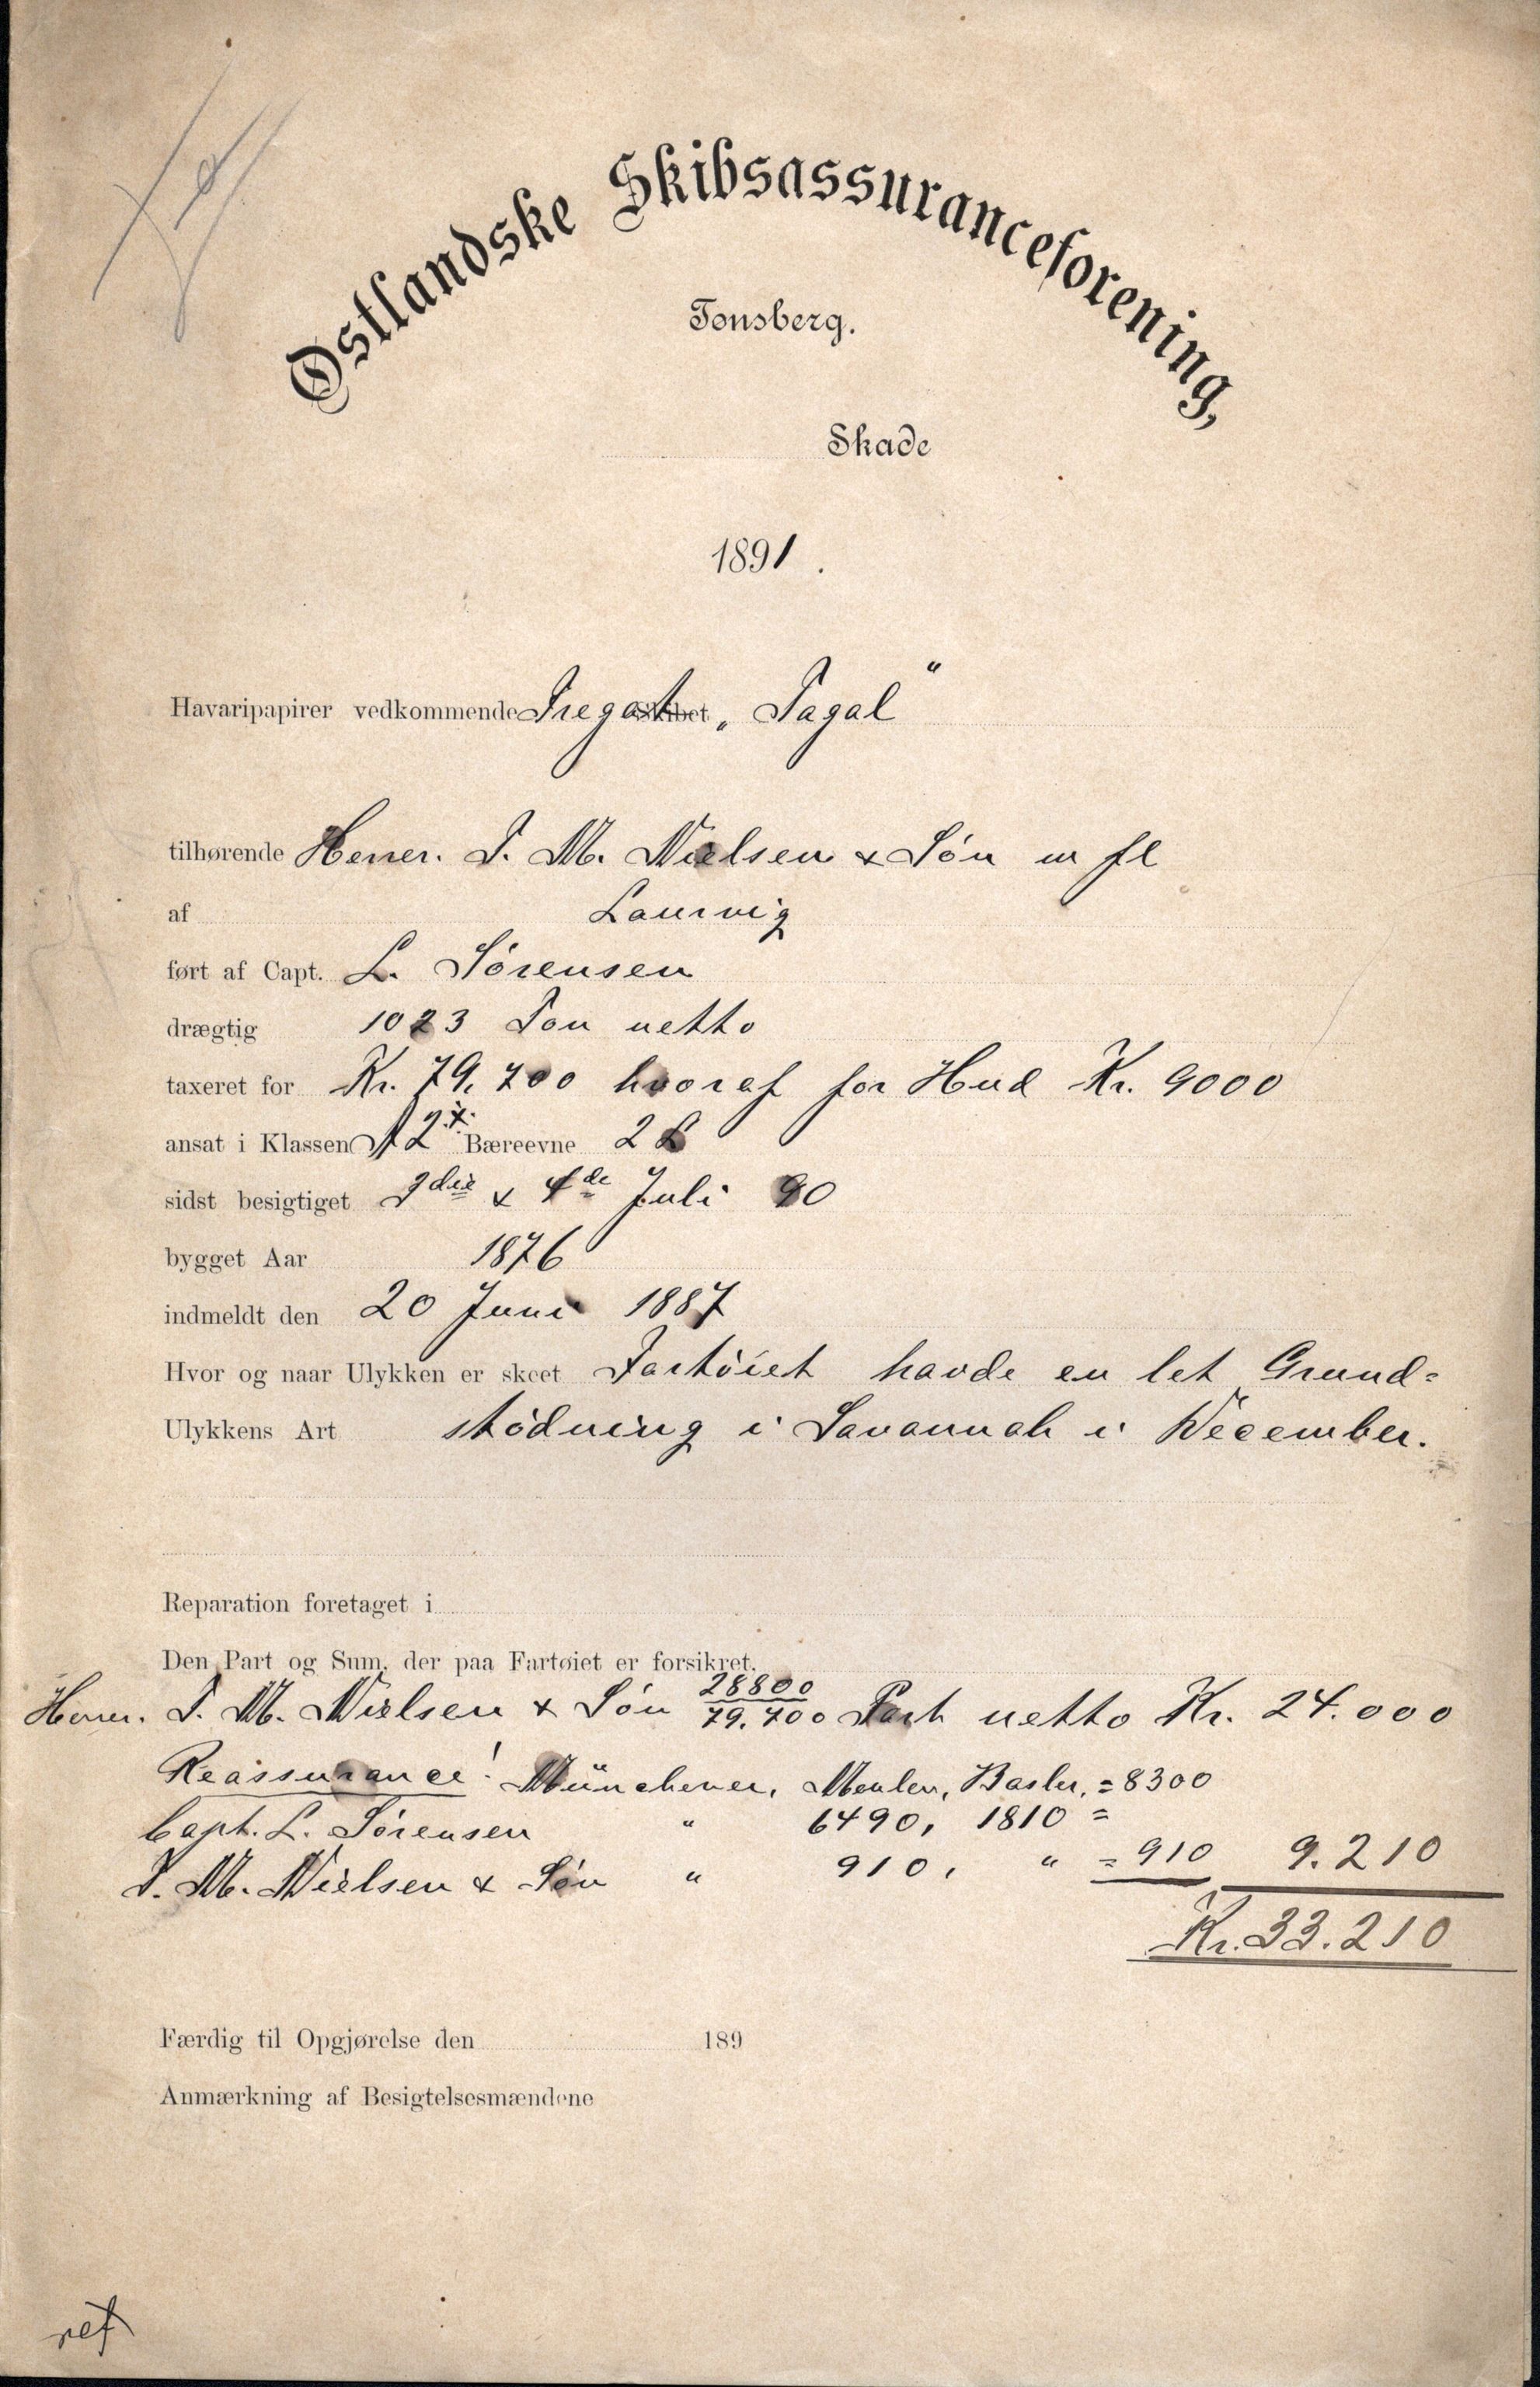 Østlandske Skibsassuranceforening,
Tønsberg.
Skade
1891.
Havaripapirer vedkommende Fregat Skibet „Fagal"
tilhørende Herrer. J. M. Nielsen & Søn m fl
af Laurvig
ført af Capt. L. Sørensen
drægtig 1023 Ton netto
taxeret for Kr. 79.700 hvoraf for Hud Kr. 9000
ansat i Klassen A 2 Bæreevne 2
sidst besigtiget 3die & 4de Juli 90
bygget Aar 1876
indmeldt den 20 Juni 1887
Hvor og naar Ulykken er skeet Fartøiet havde en let Grund-
Ulykkens Art stødning i Savannah i December.
Reparation foretaget i
Den Part og Sum, der paa Fartøiet er forsikret.
Herrer. J. M. Nielsen & Søn 28800/79.700 Part netto Kr. 24.000
Reassurance: Münchener, Basler, = 8300
Capt. L. Sørensen " 6490, 1810 =
J. M. Nielsen & Søn " 910, " = 910 9.210
Kr. 33.210
Færdig til Opgjørelse den 189
Anmærkning af Besigtelsesmændene
ref